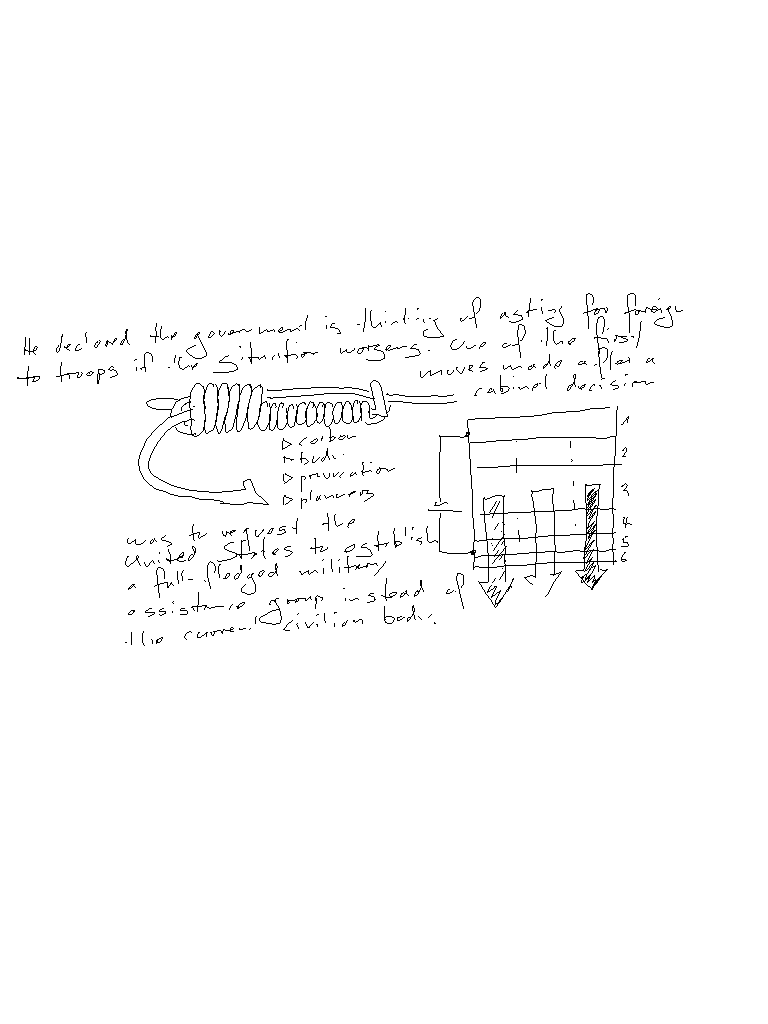 He declared the government is thinking of asking for foreign
to troops if the situation worsens. One of the first
moves made after a
cabinet decision
carbon
body
provocation
planners
was to request the
United States to establish
a full-fledged military
assistance group instead of
the current civilian body.
1
2
3
4
5
6